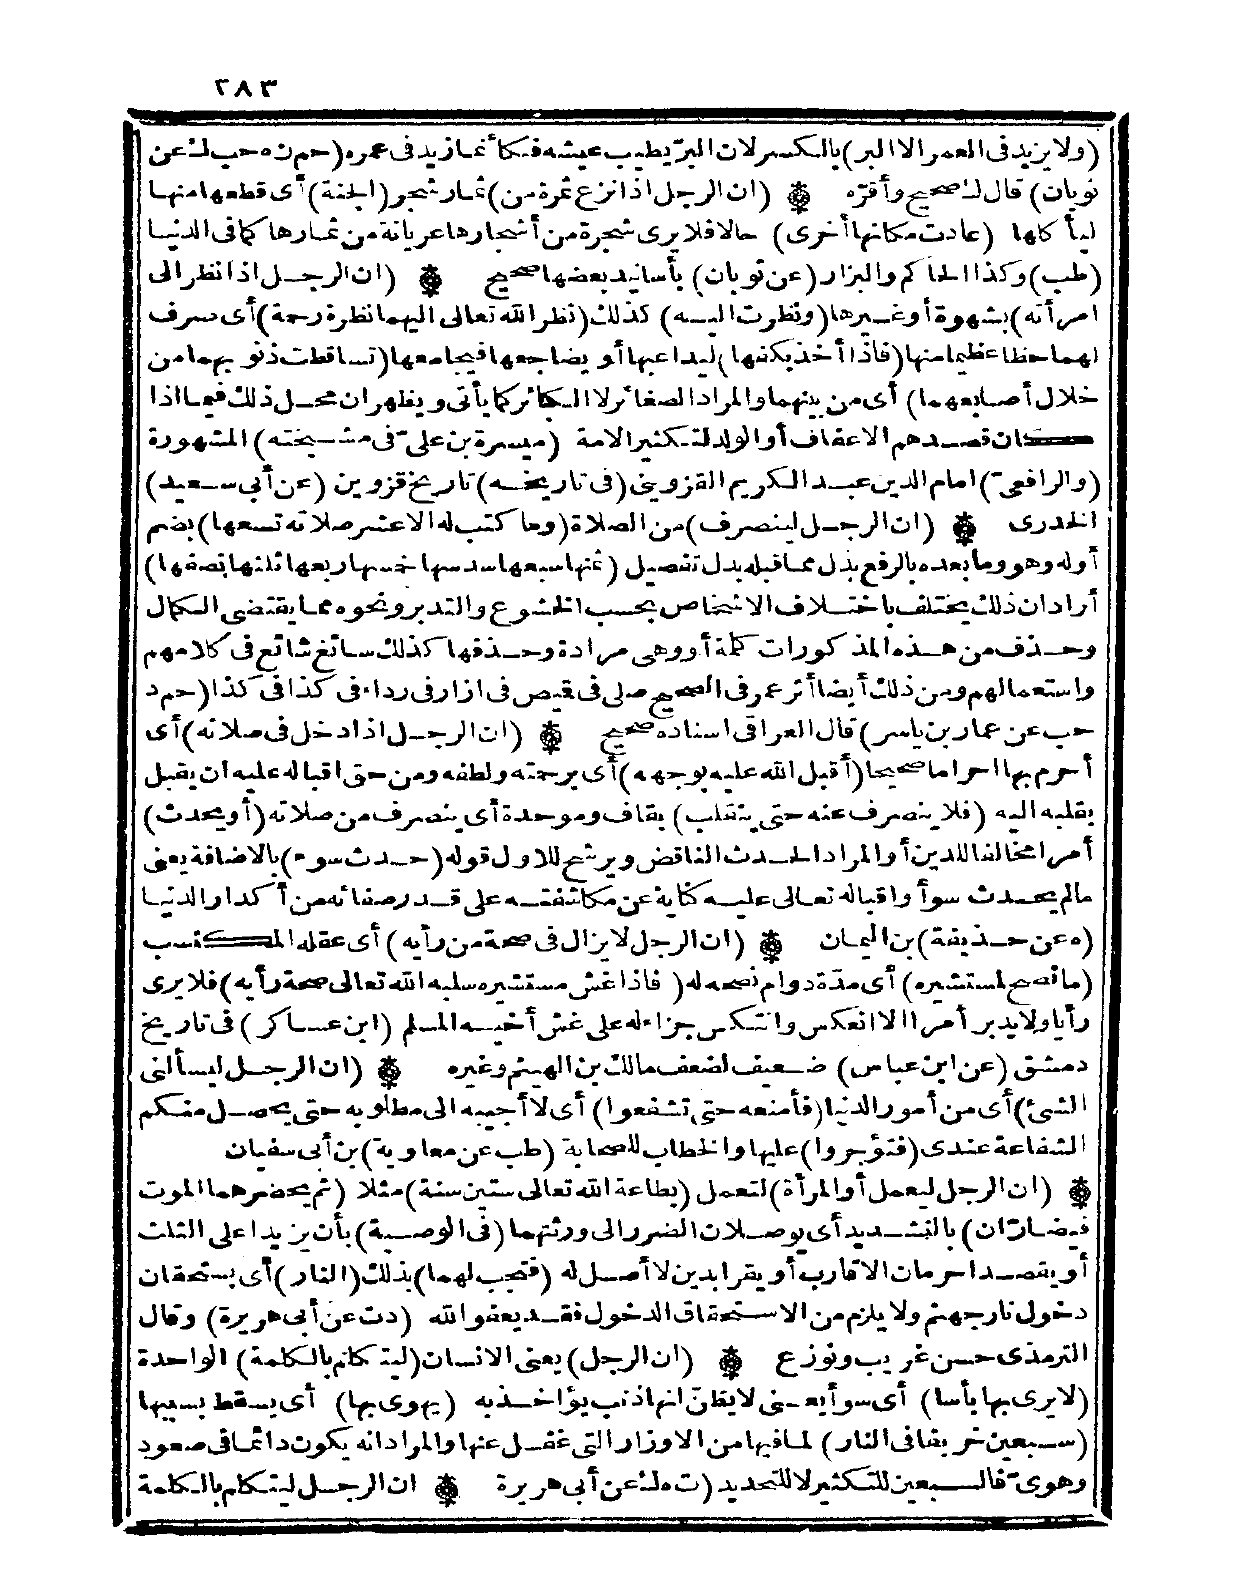 ٢٨٣
(ولا يزيد فى العمر الا البر) بالكسر لان البرّ يطيب عيشه فكأنما زيد فى عمره (حم ن ه حب ك عن
ثوبان) قال ك صحيح وأقرّه ۞ (ان الرجل اذا نزع ثمرة من) ثمار شجر (الجنة) أى قطعها منها
ليأكلها (عادت مكانها أخرى) حالا فلا يرى شجرة من أشجارها عريانة من ثمارها كما فى الدنيا
(طب) وكذا الحاكم والبزار (عن ثوبان) بأسانيد بعضها صحيح ۞ (ان الرجل اذا نظر الى
امرأته) بشهوة أو غيرها (ونظرت اليه) كذلك (نظر الله تعالى اليهما نظرة رحمة) أى صرف
لهما حظا عظيما منها (فاذا أخذ بكفها) ليداعبها أو يضاجعها فيجامعها (تساقطت ذنوبهما من
خلال أصابعهما) أى من بينهما والمراد الصغائر لا الكبائر كما يأتى ويظهر ان محل ذلك فيما اذا
كان قصدهم الاعفاف أو الولد لتكثير الامة (ميسرة بن علىّ فى مشيخته) المشهورة
(والرافعىّ) امام الدين عبد الكريم القزوينى (فى تاريخه) تاريخ قزوين (عن أبى سعيد)
الخدرى ۞ (ان الرجل لينصرف) من الصلاة (وما كتب له الا عشر صلاته تسعها) بضم
أوله وهو وما بعده بالرفع بذل مما قبله بدل تفصيل (ثمنها سبعها سدسها خمسها ربعها ثلثها نصفها)
أراد ان ذلك يختلف باختلاف الاشخاص بحسب الخشوع والتدبر ونحوه مما يقتضى الكمال
وحذف من هذه المذكورات كلمة أو وهى مرادة وحذفها كذلك سائغ شائع فى كلامهم
واستعمالهم ومن ذلك أيضا أثر عمر فى الصحيح صلى فى قيص فى ازار فى رداء فى كذا فى كذا (حم د
حب عن عمار بن ياسر) قال العراقى اسناده صحيح ۞ (ان الرجل اذا دخل فى صلاته) أى
أحرم بها احراما صحيحا (أقبل الله عليه بوجهه) أى برحمته ولطفه ومن حق اقباله عليه ان يقبل
بقلبه اليه (فلا ينصرف عنه حتى ينقلب) بقاف وموحدة أى ينصرف من صلاته (أو يحدث)
أمرا مخالفا للدين أو المراد الحدث الناقض ويرشح للاول قوله (حدث سوء) بالاضافة يعنى
مالم يحدث سوأ واقباله تعالى عليه كناية عن مكاشفته على قدر صفائه من أكدار الدنيا
(ه عن حذيفة) بن اليمان ۞ (ان الرجل لا يزال فى صحة من رأيه) أى عقله المكتسب
(ما نصح لمستشيره) أى مدّة دوام نصحه له (فاذا غش مستشيره سلبه الله تعالى صحة رأيه) فلا يرى
رأيا ولا يدبر أمرا الا انعكس وانتكس جزاء له على غش أخيه المسلم (ابن عساكر) فى تاريخ
دمشق (عن ابن عباس) ضعيف لضعف مالك بن الهيثم وغيره ۞ (ان الرجل ليسألنى
الشئ) أى من أمور الدنيا (فأمنعه حتى تشفعوا) أى لا أجيبه الى مطلوبه حتى يحصل منكم
الشفاعة عندى (فتؤجروا) عليها والخطاب للصحابة (طب عن معاوية) بن أبى سفيان
۞ (ان الرجل ليعمل أو المرأة) لتعمل (بطاعة الله تعالى ستين سنة) مثلا (ثم يحضرهما الموت
فيضارّان) بالتشديد أى يوصلان الضرر الى ورثتهما (فى الوصية) بأن يزيدا على الثلث
أو يقصدا حرمان الاقارب أو يقرا بدين لا أصل له (فتجب لهما) بذلك (النار) أى يستحقان
دخول نار جهنم ولا يلزم من الاستحقاق الدخول فقد يعفو الله (د ت عن أبى هريرة) وقال
الترمذى حسن غريب ونوزع ۞ (ان الرجل) يعنى الانسان (ليتكلم بالكلمة) الواحدة
(لا يرى بها بأسا) أى سوأ يعنى لا يظنّ انها ذنب يؤاخذ به (يهوى بها) أى يسقط بسببها
(سبعين خريفا فى النار) لما فيها من الاوزار التى غفل عنها والمراد انه يكون دائما فى صعود
وهوىّ فالسبعين للتكثير لا للتحديد (ت ه ك عن أبى هريرة ۞ ان الرجل ليتكلم بالكلمة